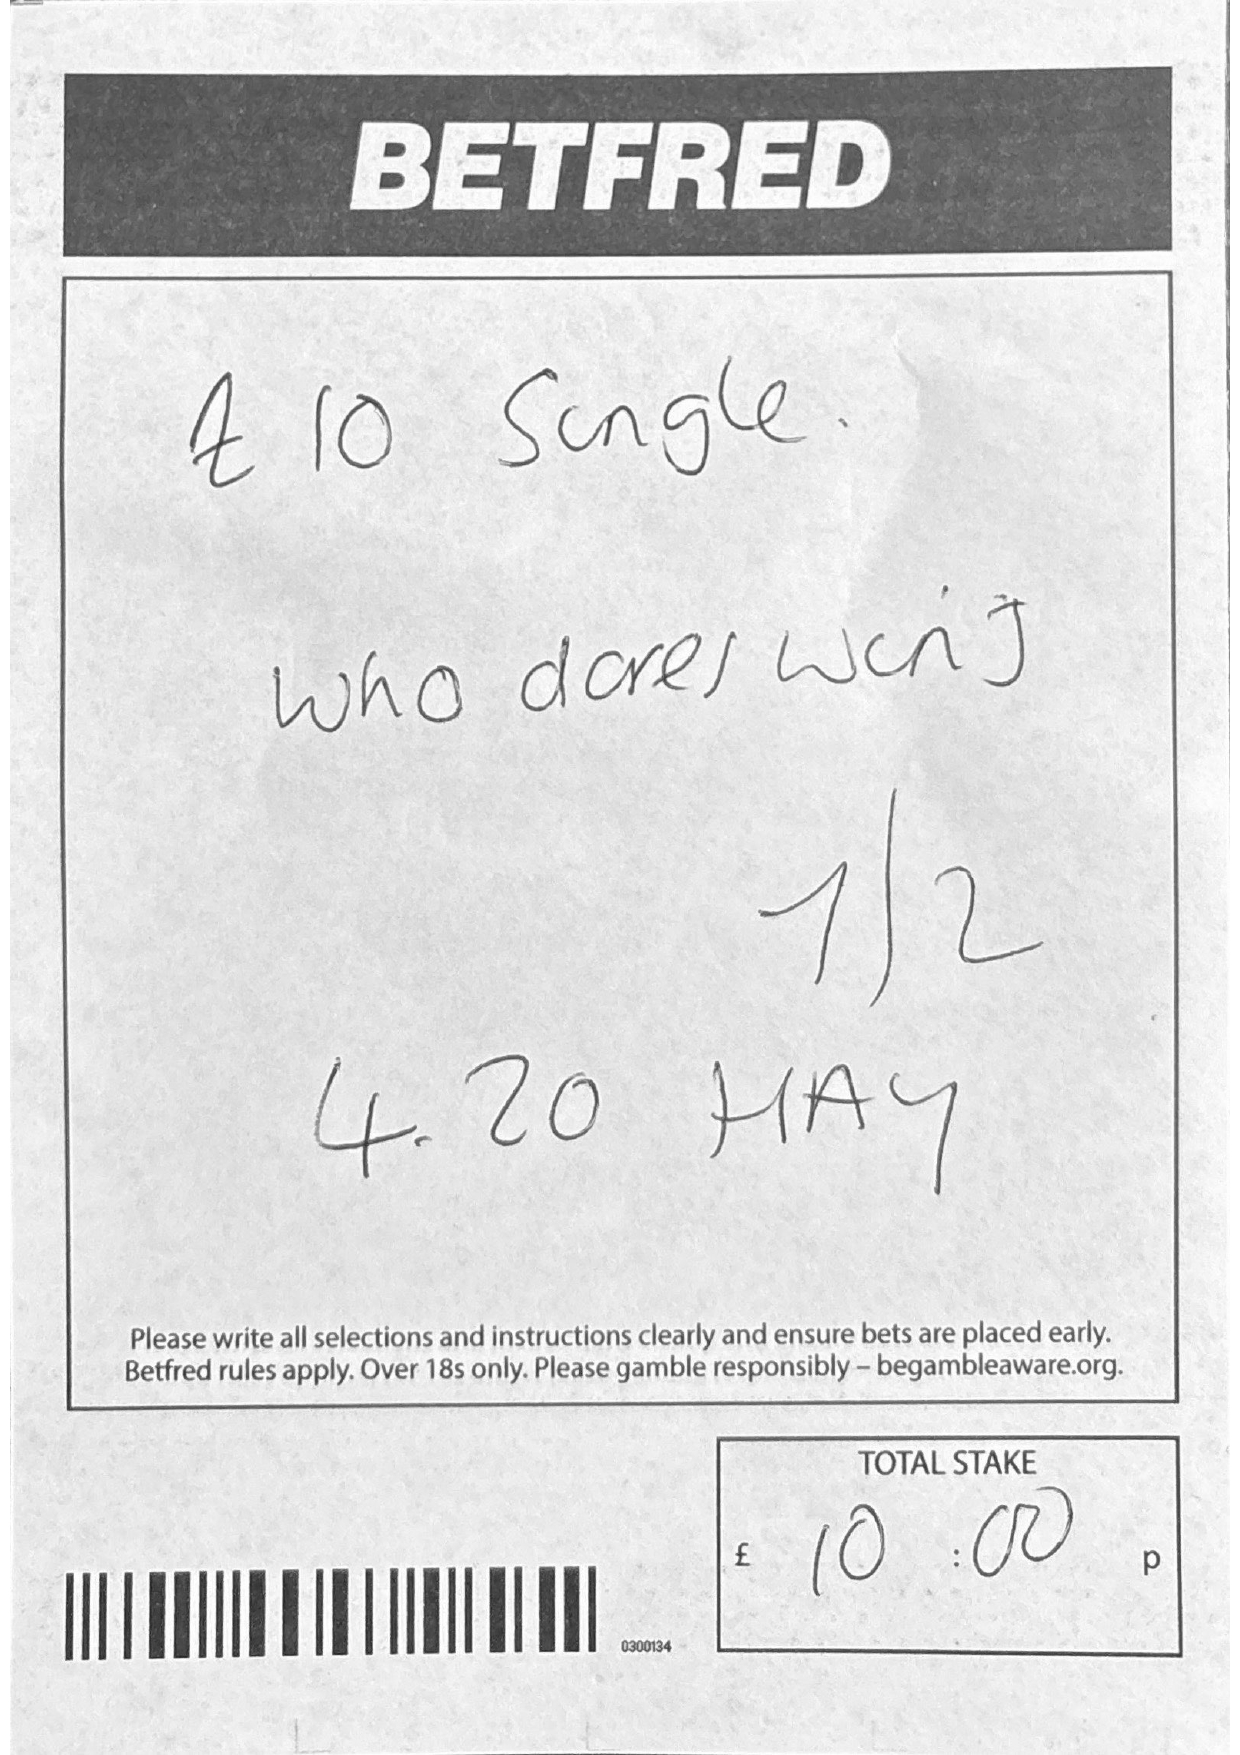 BETFRED
£ 10 Single.
who dares wins
1/2
4.20 HAY
Please write all selections and instructions clearly and ensure bets are placed early.
Betfred rules apply. Over 18s only. Please gamble responsibly – begambleaware.org.
TOTAL STAKE
£ 10 :00 p
0300134